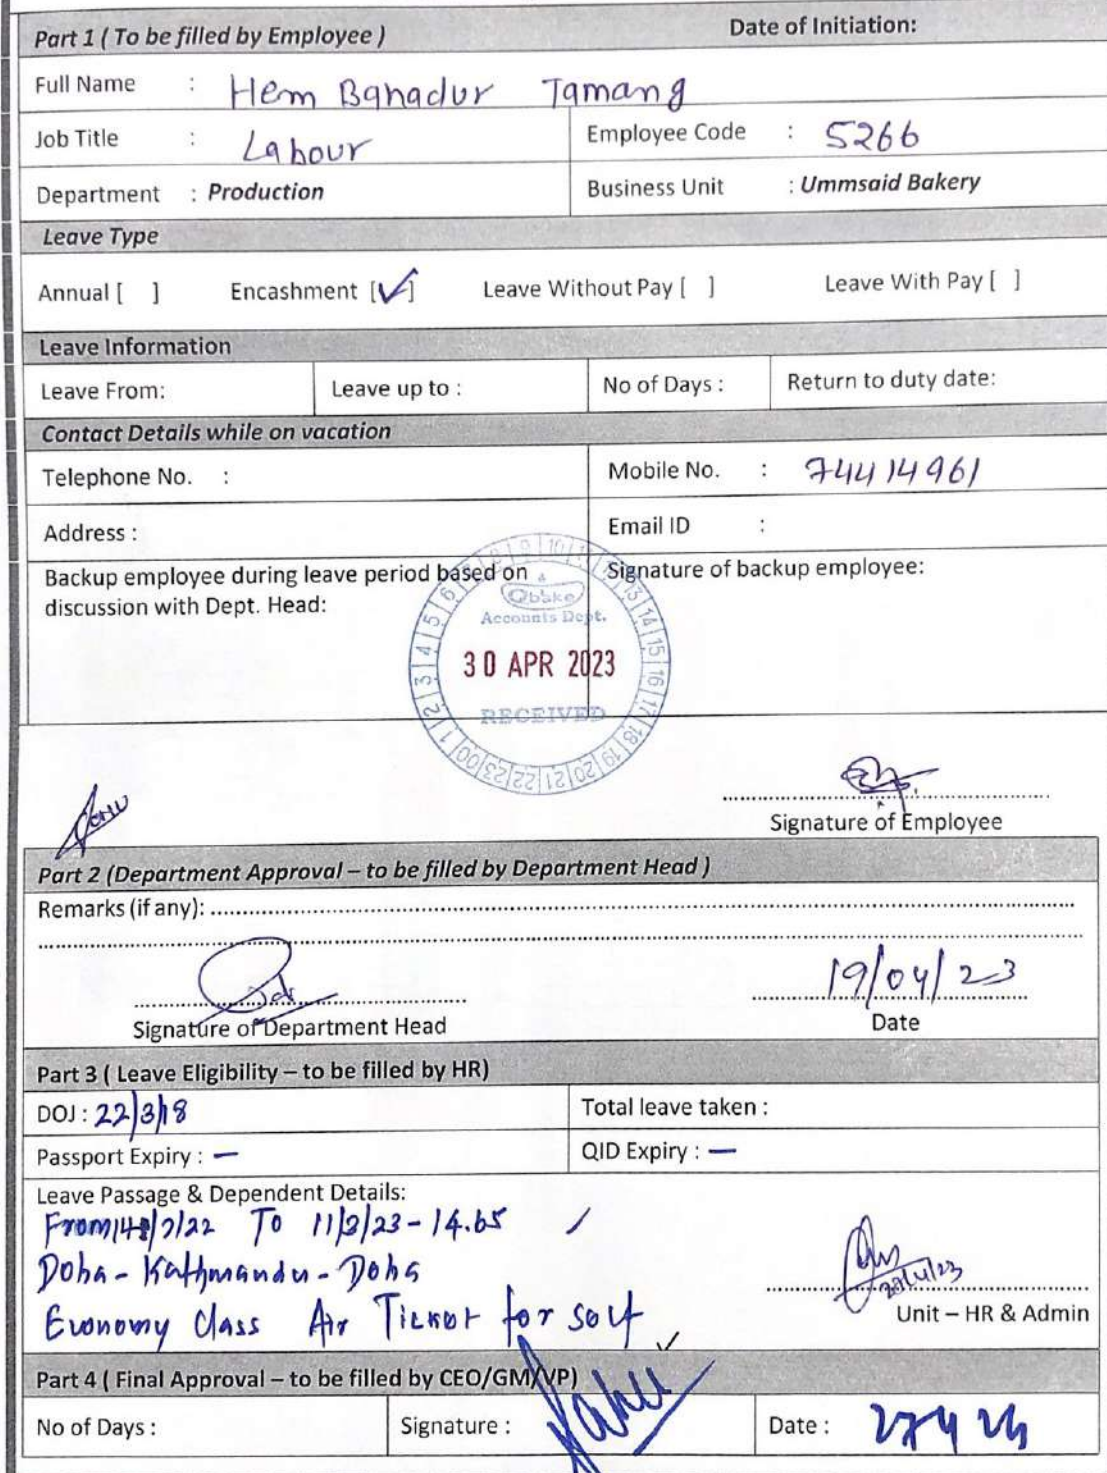 Part 1 ( To be filled by Employee ) Date of Initiation:
Full Name : Hem Bahadur Tamang
Job Title : Labour Employee Code : 5266
Department : Production Business Unit : Ummsaid Bakery
Leave Type
Annual [ ] Encashment [✓] Leave Without Pay [ ] Leave With Pay [ ]
Leave Information
Leave From: Leave up to : No of Days : Return to duty date:
Contact Details while on vacation
Telephone No. : Mobile No. : 74414961
Address : Email ID :
Backup employee during leave period based on Signature of backup employee:
discussion with Dept. Head:
Qbake
Accounts Dept.
30 APR 2023
RECEIVED
00 1 2 3 4 5 6 7 8 9 10 11 12 13 14 15 16 17 18 19 20 21 22 23
Signature of Employee
Part 2 (Department Approval – to be filled by Department Head )
Remarks (if any):
19/04/23
Signature of Department Head Date
Part 3 ( Leave Eligibility – to be filled by HR)
DOJ : 22/3/18 Total leave taken :
Passport Expiry : — QID Expiry : —
Leave Passage & Dependent Details:
From /22 To 11/3/23 - 14.65
Doha - Kathmandu - Doha
Economy Class Air Ticket for self
Unit – HR & Admin
Part 4 ( Final Approval – to be filled by CEO/GM/VP)
No of Days : Signature : Date :